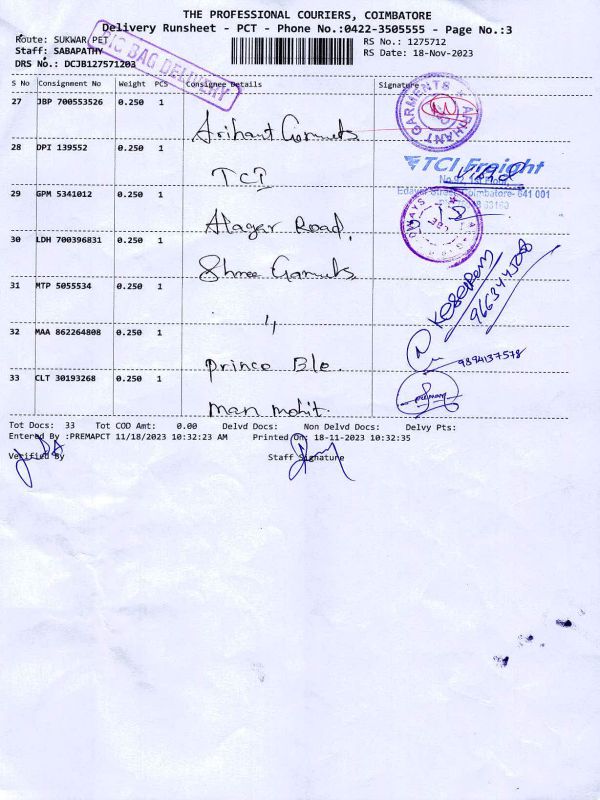 THE PROFESSIONAL COURIERS, COIMBATORE
Delivery Runsheet - PCT - Phone No.:0422-3505555 - Page No.:3
Route: SUKWAR PET
RS No.: 1275712
Staff: SABAPATHY
RS Date: 18-Nov-2023
DRS No.: DCJB127571203
BIG BAG DELIVERY
S No Consignment No Weight PCS Consignee Details Signature
27 JBP 700553526 0.250 1
Arihant Garments
ARIHANT GARMENTS
28 DPI 139552 0.250 1
TCI
TCI Freight
Coimbatore- 641 001
29 GPM 5341012 0.250 1
Alagar Road,
30 LDH 700396831 0.250 1
Shree Garments
31 MTP 5055534 0.250 1
"
32 MAA 862264808 0.250 1
Prince Ble.
9894137578
33 CLT 30193268 0.250 1
man mohit
Tot Docs: 33 Tot COD Amt: 0.00 Delvd Docs: Non Delvd Docs: Delvy Pts:
Entered By :PREMAPCT 11/18/2023 10:32:23 AM Printed On: 18-11-2023 10:32:35
Verified By Staff Signature